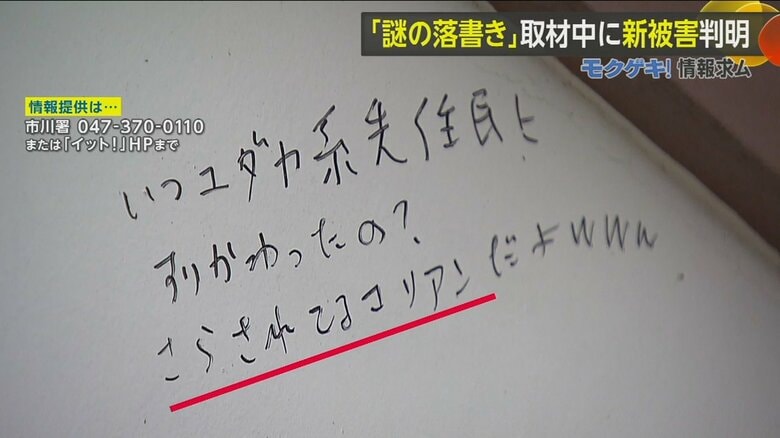 「謎の落書き」取材中に新被害判明
モクゲキ!情報求ム
情報提供は…
市川署 047-370-0110
または「イット!」HPまで
いつユダヤ系先住民と
すりかわったの?
さらされてるコリアンだよwww